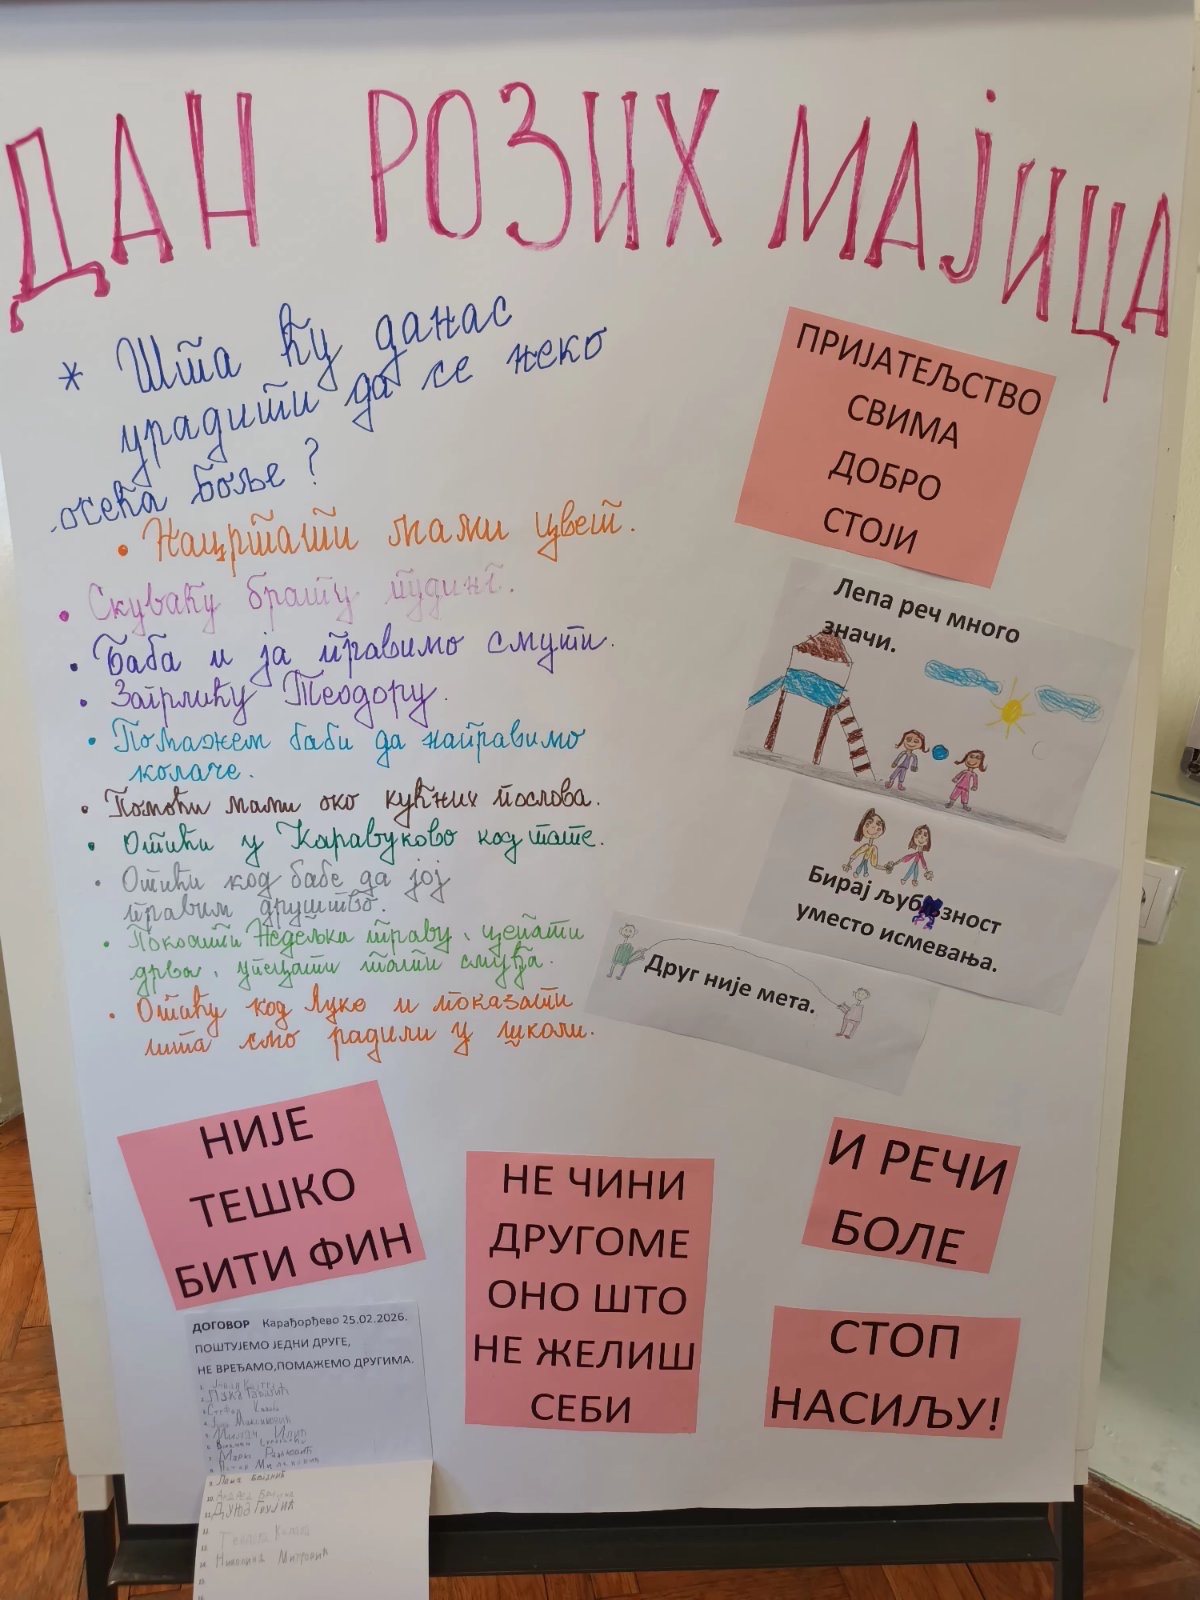 ДАН РОЗИХ МАЈИЦА
* Шта ћу данас
урадити да се неко
осећа боље?
• Нацртати мами цвет.
• Скуваћу брату пудинг.
• Баба и ја правимо смути.
• Загрлићу Теодору.
• Помажем баби да направимо
колаче.
• Помоћи мами око кућних послова.
• Отићи у Каравуково код тате.
• Отићи код бабе да јој
правим друштво.
• Покосити Недељка траву, цепати
дрва, упецати тати смуђа.
• Отићу код Луке и показати
шта смо радили у школи.
ПРИЈАТЕЉСТВО
СВИМА
ДОБРО
СТОЈИ
Лепа реч много
значи.
Бирај љубазност
уместо исмевања.
Друг није мета.
НИЈЕ
ТЕШКО
БИТИ ФИН
НЕ ЧИНИ
ДРУГОМЕ
ОНО ШТО
НЕ ЖЕЛИШ
СЕБИ
И РЕЧИ
БОЛЕ
СТОП
НАСИЉУ!
ДОГОВОР Карађорђево 25.02.2026.
ПОШТУЈЕМО ЈЕДНИ ДРУГЕ,
НЕ ВРЕЂАМО,ПОМАЖЕМО ДРУГИМА.
Милан Илић
9. Лана
11. Дуња Грујић
14. Николина Митровић